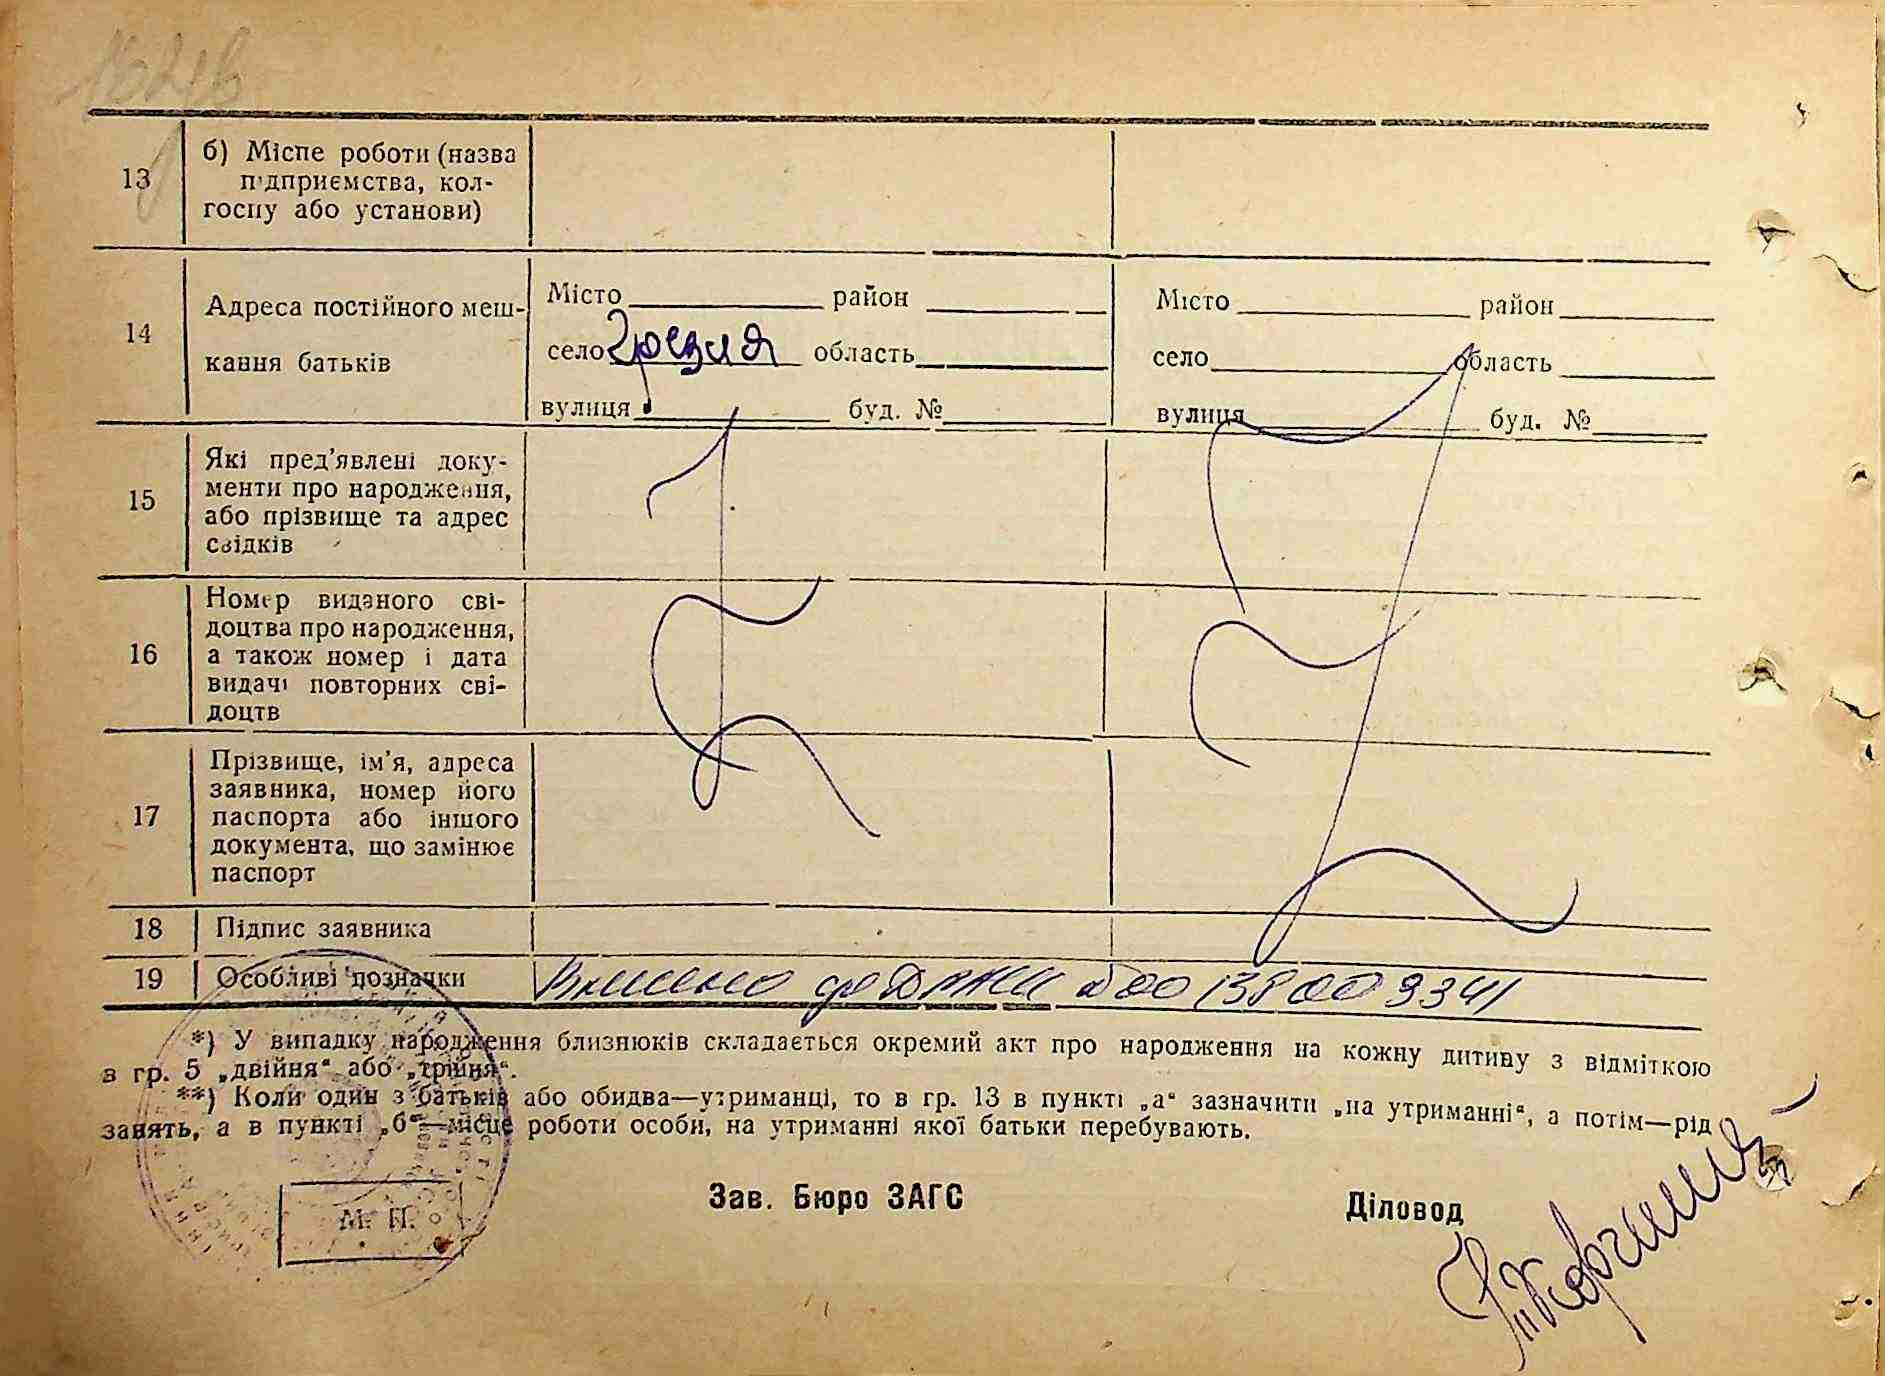 13
б) Місце роботи (назва
підприємства, кол-
госпу або установи)
14
Адреса постійного меш-
кання батьків
Місто район
село область
вулиця буд. №
Місто район
село область
вулиця буд. №
15
Які пред'явлені доку-
менти про народження,
або прізвище та адрес
свідків
16
Номер виданого сві-
доцтва про народження,
а також номер і дата
видачі повторних сві-
доцтв
17
Прізвище, ім'я, адреса
заявника, номер його
паспорта або іншого
документа, що замінює
паспорт
18 Підпис заявника
19 Особливі позначки Внесено до ДРАЦС № 00138009341
*) У випадку народження близнюків складається окремий акт про народження на кожну дитину з відміткою
в гр. 5 „двійня“ або „трійня“.
**) Коли один з батьків або обидва—утриманці, то в гр. 13 в пункті „а“ зазначити „на утриманні“, а потім—рід
занять, а в пункті „б“—місце роботи особи, на утриманні якої батьки перебувають.
Зав. Бюро ЗАГС
Діловод
М. П.